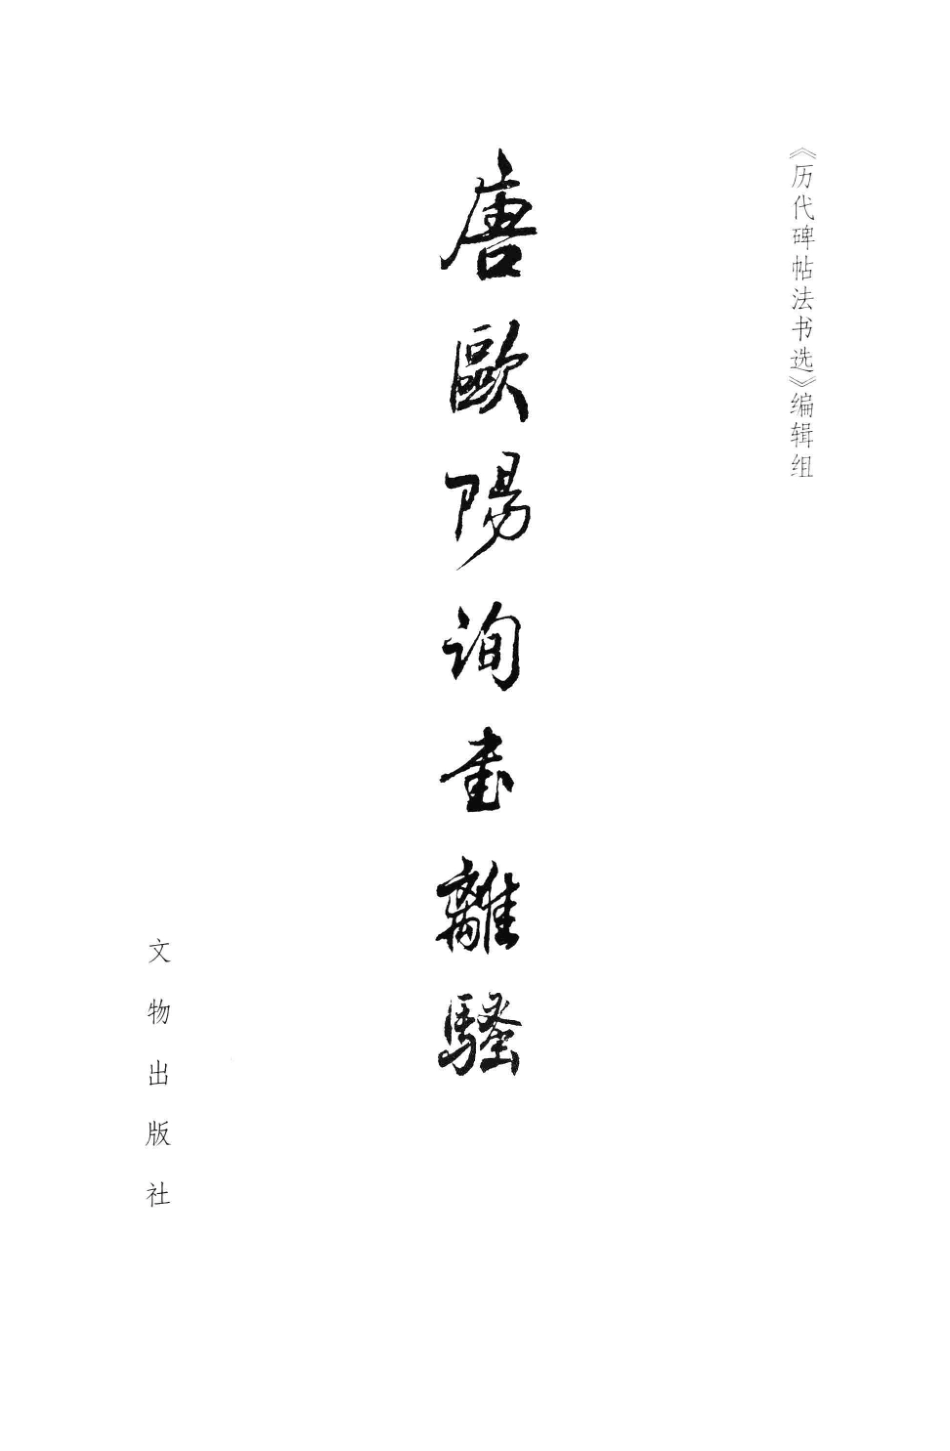 《历代碑帖法书选》编辑组
唐歐陽询书離騷
文物出版社